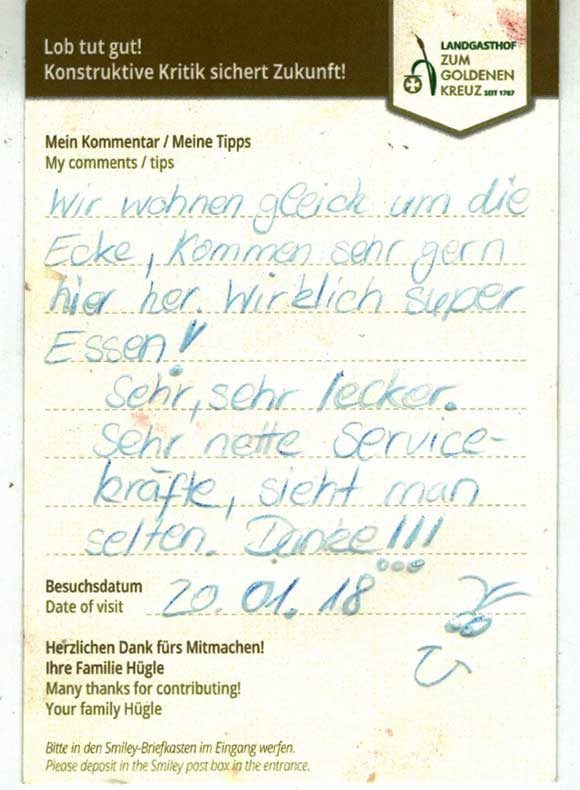 Lob tut gut!
Konstruktive Kritik sichert Zukunft!
LANDGASTHOF
ZUM
GOLDENEN
KREUZ SEIT 1787
Mein Kommentar / Meine Tipps
My comments / tips
Wir wohnen gleich um die
Ecke, Kommen sehr gern
hier her. Wirklich super
Essen!
Sehr, sehr lecker.
Sehr nette Service-
kräfte, sieht man
selten. Danke!!!
Besuchsdatum
Date of visit 20.01.18
Herzlichen Dank fürs Mitmachen!
Ihre Familie Hügle
Many thanks for contributing!
Your family Hügle
Bitte in den Smiley-Briefkasten im Eingang werfen.
Please deposit in the Smiley post box in the entrance.